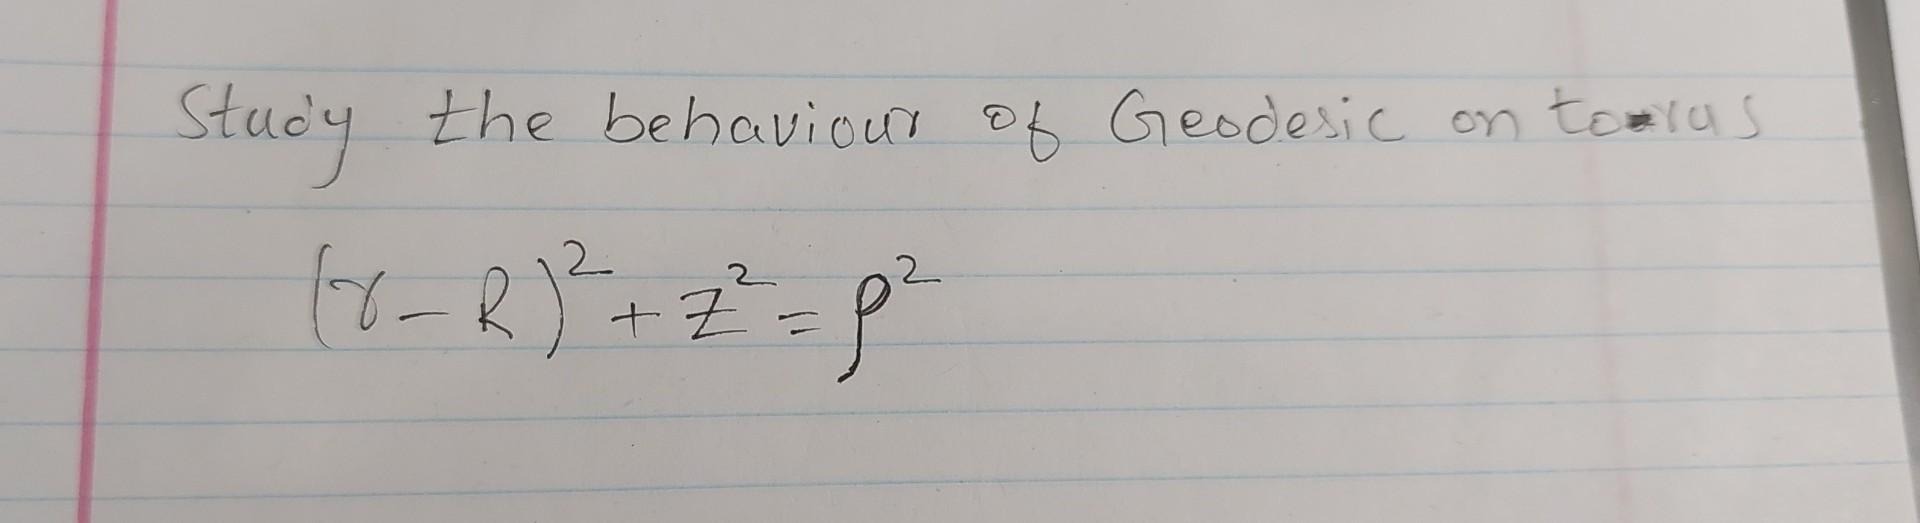 Study the behaviour of Geodesic on torus
(r-R)² + z² = ρ²